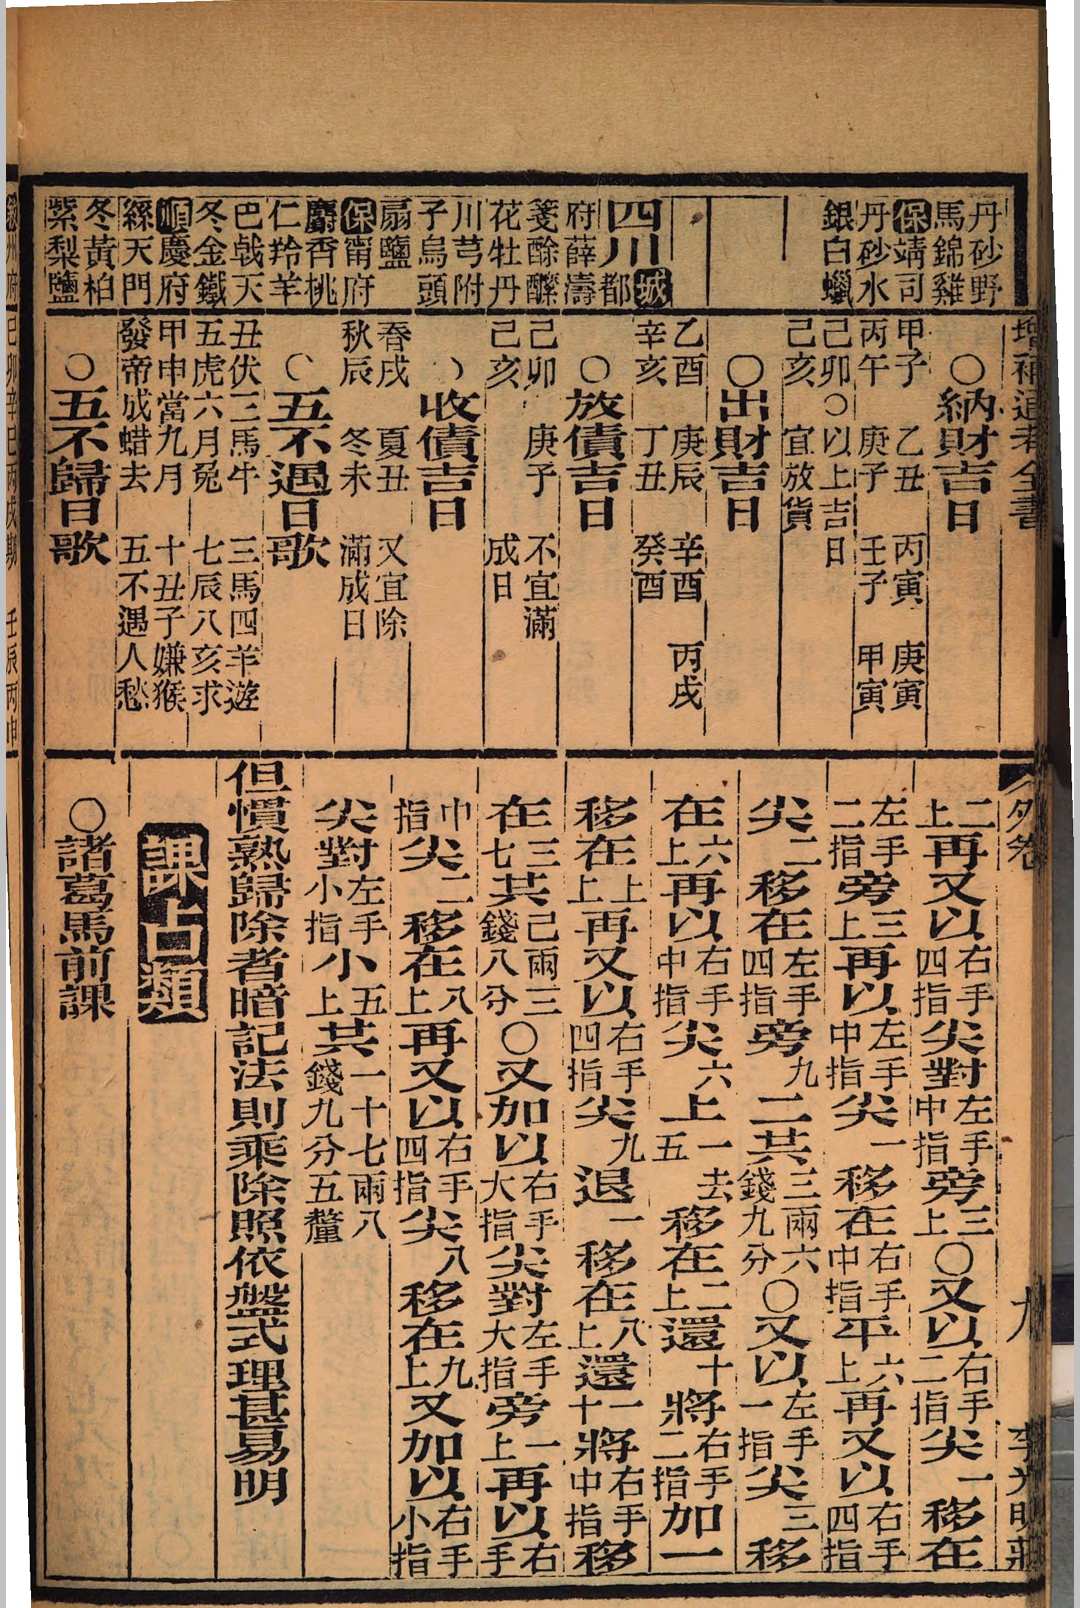 增補通考全書 外卷 九 李光明莊
丹砂野
馬錦雞
保靖司
丹砂水
銀白蠟
四川城都
府薛濤
箋酴醿
花牡丹
川芎附
子烏頭
扇鹽
保甯府
麝香桃
仁羚羊
巴戟天
冬金鐵
順慶府
絲天門
冬黃柏
紫梨鹽
○納財吉日
甲子 乙丑 丙寅 庚寅
丙午 庚子 壬子 甲寅
己卯○以上吉日
己亥 宜放貨
○出財吉日
乙酉 庚辰 辛酉 丙戌
辛亥 丁丑 癸酉
○放債吉日
己卯 庚子 不宜滿
己亥 成日
○收債吉日
春戌 夏丑 又宜除
秋辰 冬未 滿成日
○五不遇日歌
丑伏三馬牛 三馬四羊遊
五虎六月兔 七辰八亥求
甲申當九月 十丑子嫌猴
發帝成蜡去 五不遇人愁
○五不歸日歌
二上再又以右手四指尖對左手中指旁三上○又以右手二指尖一移在
左手二指旁三上再以左手中指尖一移在右手中指平六上再又以右手四指
尖二移在左手四指旁九二共三兩六錢九分○又以左手一指尖三移
在六上再以右手中指尖六上一去五移在二上還十將右手二指加一
移在上上再又以右手四指尖九退一移在八上還一十將右手中指移
在三七共己兩三錢八分○又加以右手大指尖對左手大指旁一上再以右手
巾指尖二移在八上再又以右手四指尖八移在九上又加以右手小指
尖對左手小指小五上共一十七兩八錢九分五釐
但慣熟歸除者暗記法則乘除照依盤式理甚易明
課占類
○諸葛馬前課